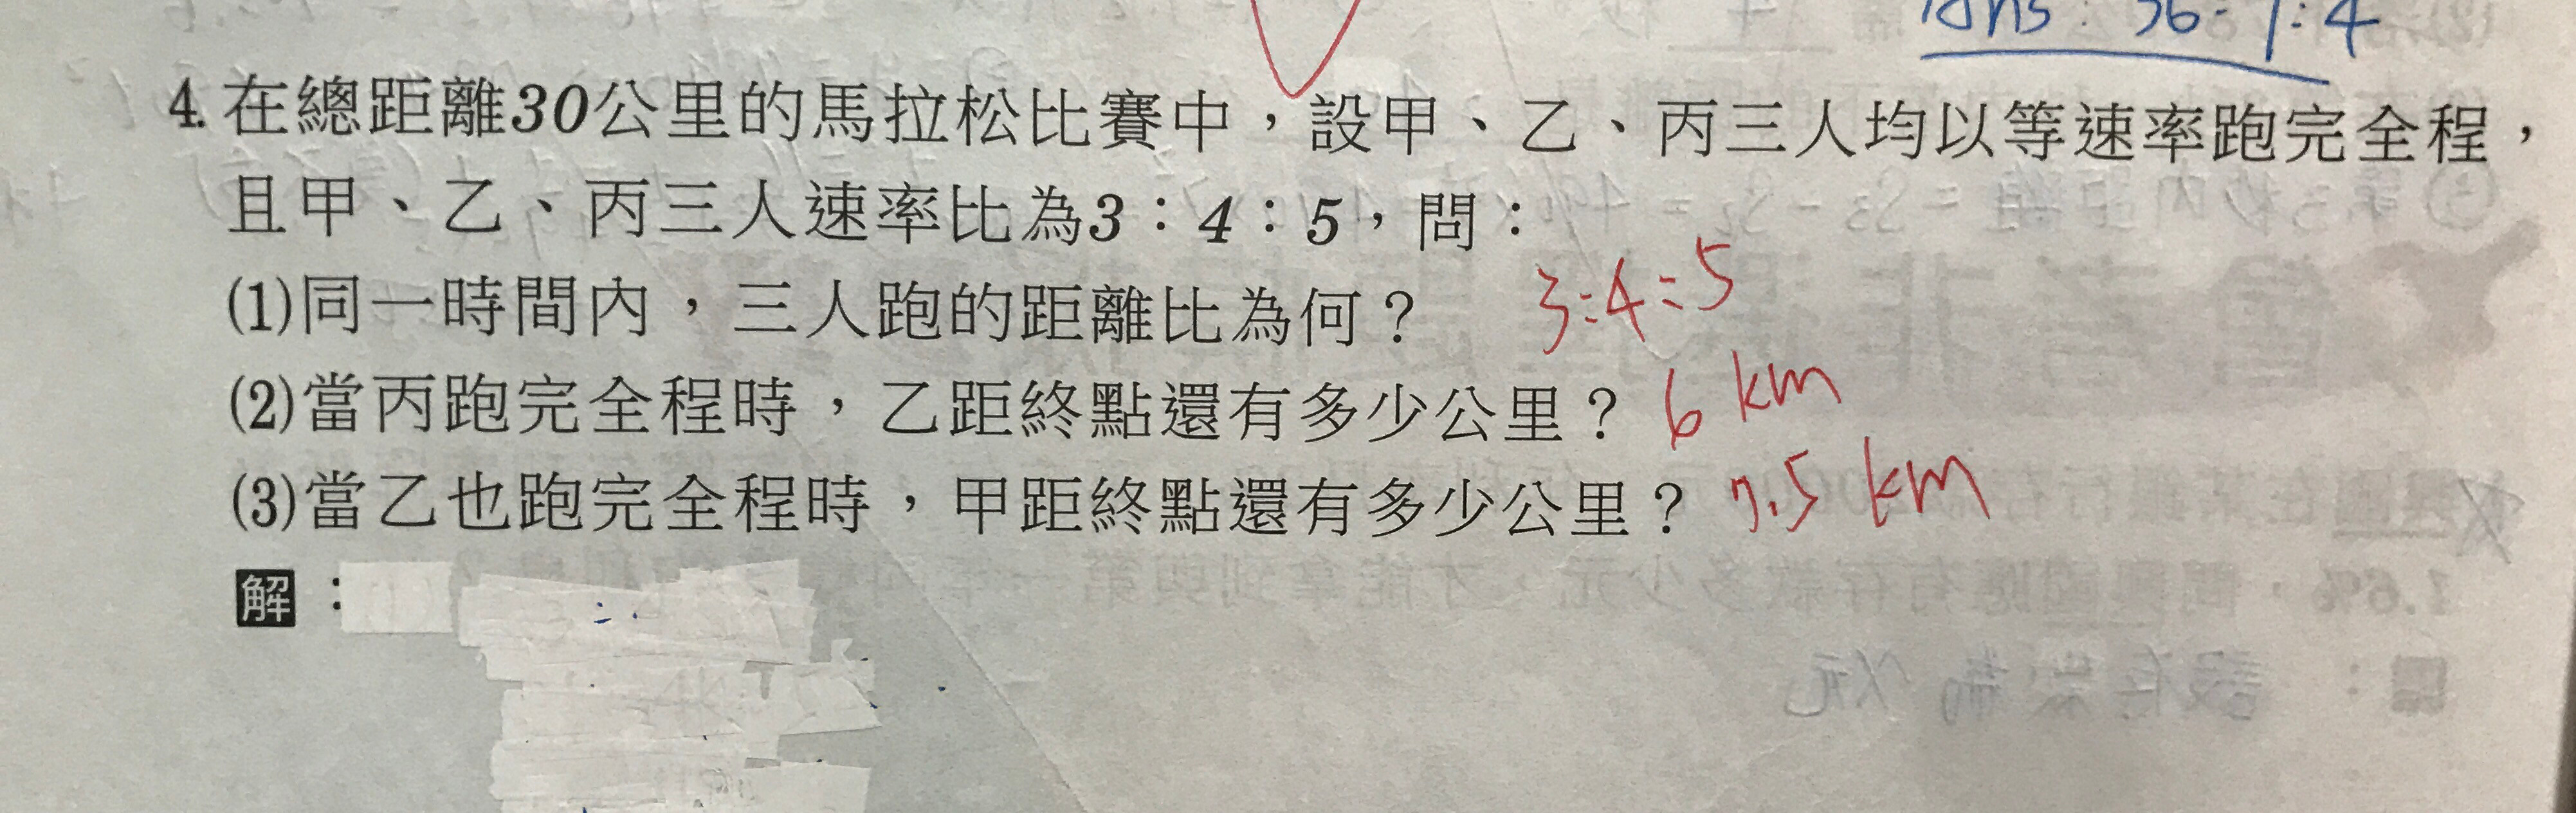 Ans: 36:9:4
4. 在總距離30公里的馬拉松比賽中，設甲、乙、丙三人均以等速率跑完全程，
且甲、乙、丙三人速率比為3：4：5，問：
(1)同一時間內，三人跑的距離比為何？ 3:4:5
(2)當丙跑完全程時，乙距終點還有多少公里？ 6 km
(3)當乙也跑完全程時，甲距終點還有多少公里？ 7.5 km
解：